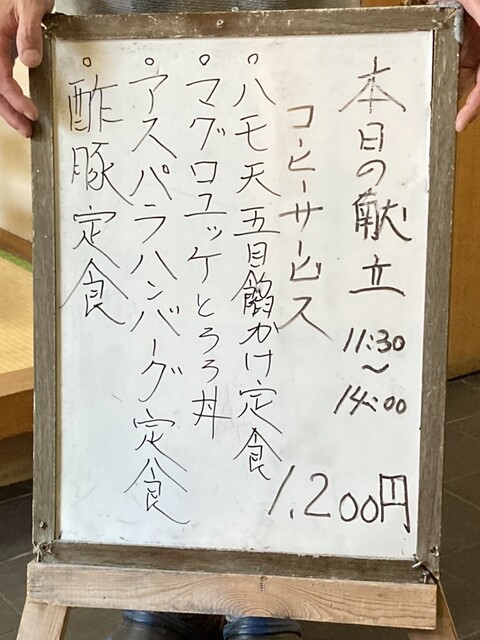 本日の献立
11:30
～
14:00
コーヒーサービス
1,200円
。ハモ天五目餡かけ定食
。マグロユッケとろろ丼
。アスパラハンバーグ定食
。酢豚定食